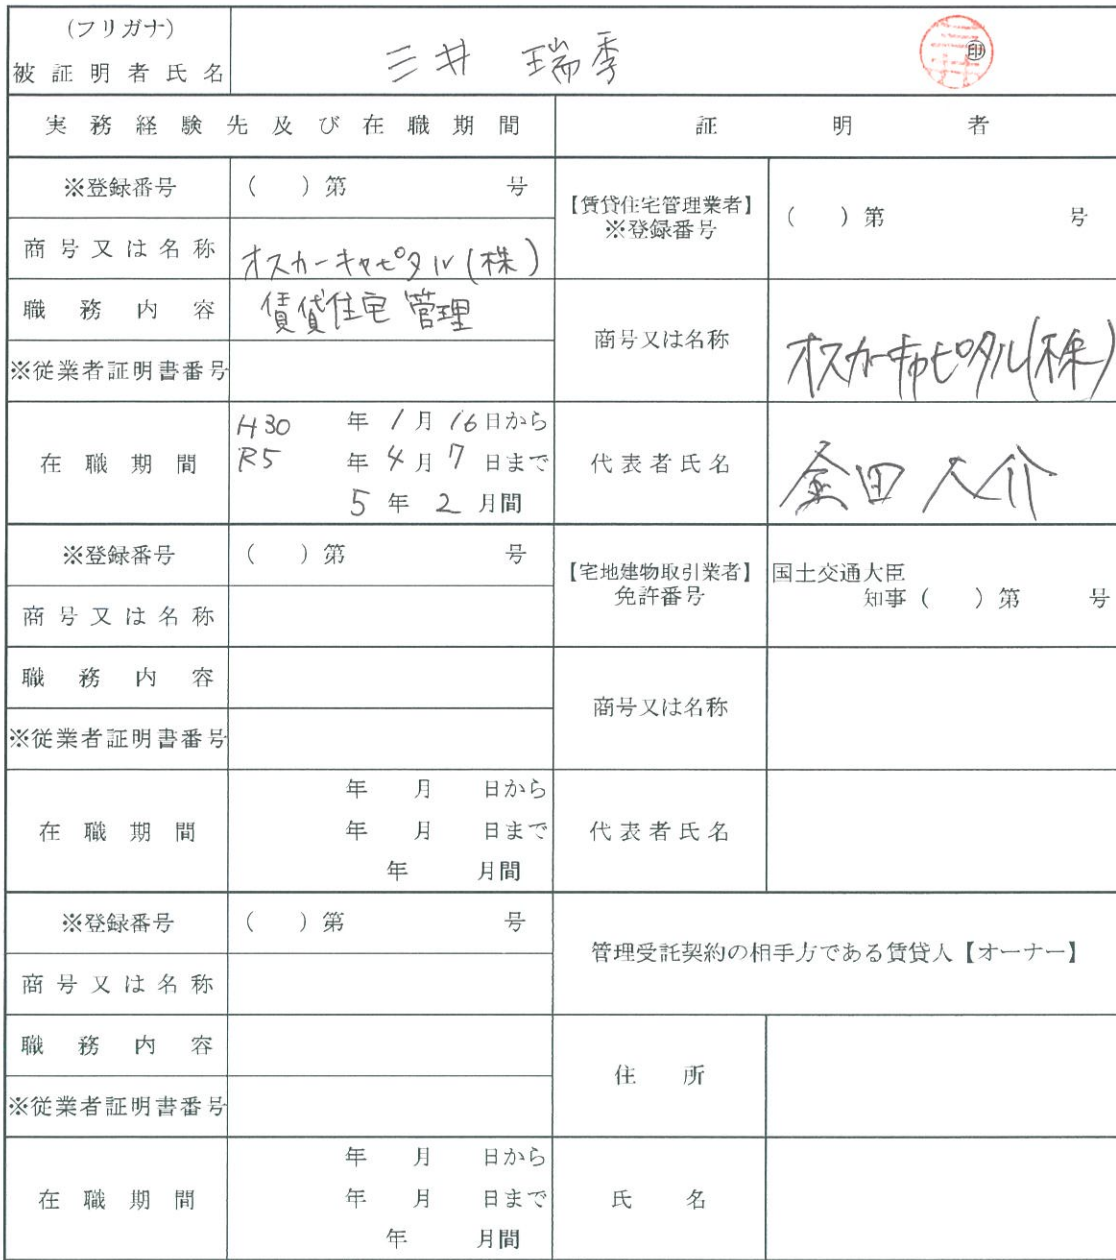 (フリガナ)
被証明者氏名 三井 瑞季 ㊞ 三井
実務経験先及び在職期間 証明者
※登録番号 ( )第 号
【賃貸住宅管理業者】
※登録番号 ( )第 号
商号又は名称 オスカーキャピタル(株)
職務内容 賃貸住宅管理
商号又は名称 オスカーキャピタル(株)
※従業者証明書番号
H30 年 1月 16日から
在職期間 R5 年 4月 7日まで
5年 2月間
代表者氏名 金田大介
※登録番号 ( )第 号
【宅地建物取引業者】
免許番号
国土交通大臣
知事( )第 号
商号又は名称
職務内容
商号又は名称
※従業者証明書番号
年 月 日から
在職期間 年 月 日まで
年 月間
代表者氏名
※登録番号 ( )第 号
管理受託契約の相手方である賃貸人【オーナー】
商号又は名称
職務内容
住所
※従業者証明書番号
年 月 日から
在職期間 年 月 日まで
年 月間
氏名